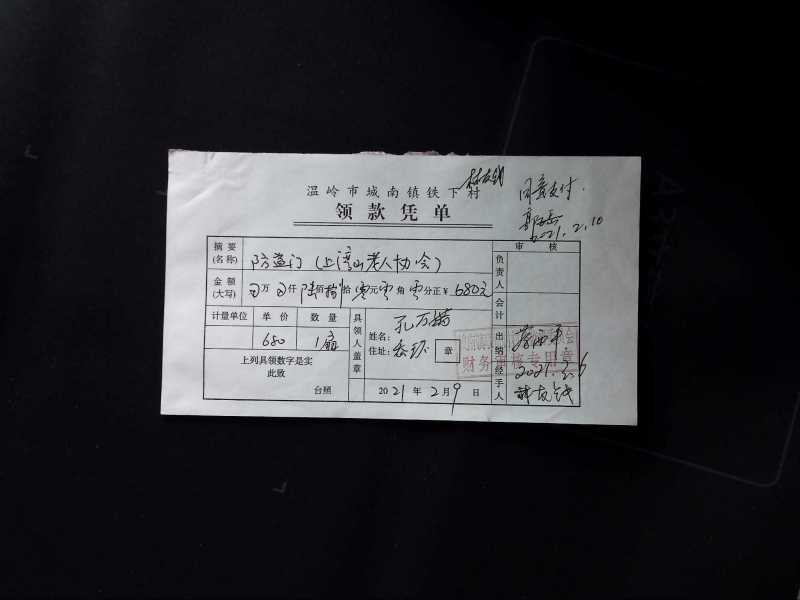 温岭市城南镇铁下村
领款凭单
同意支付.
2021.2.10
摘要
(名称)
防盗门(上湾山老人协会)
审核
金额
(大写)
万 仟 陆佰捌拾零元零角零分正¥680元
负责人
计量单位 单价 数量
680 1扇
具领人盖章
姓名: 孔万
住址:
章
会计
出纳
经手人
财务审核专用章
2021.2.6
上列具领数字是实
此致
台照
2021年2月9日